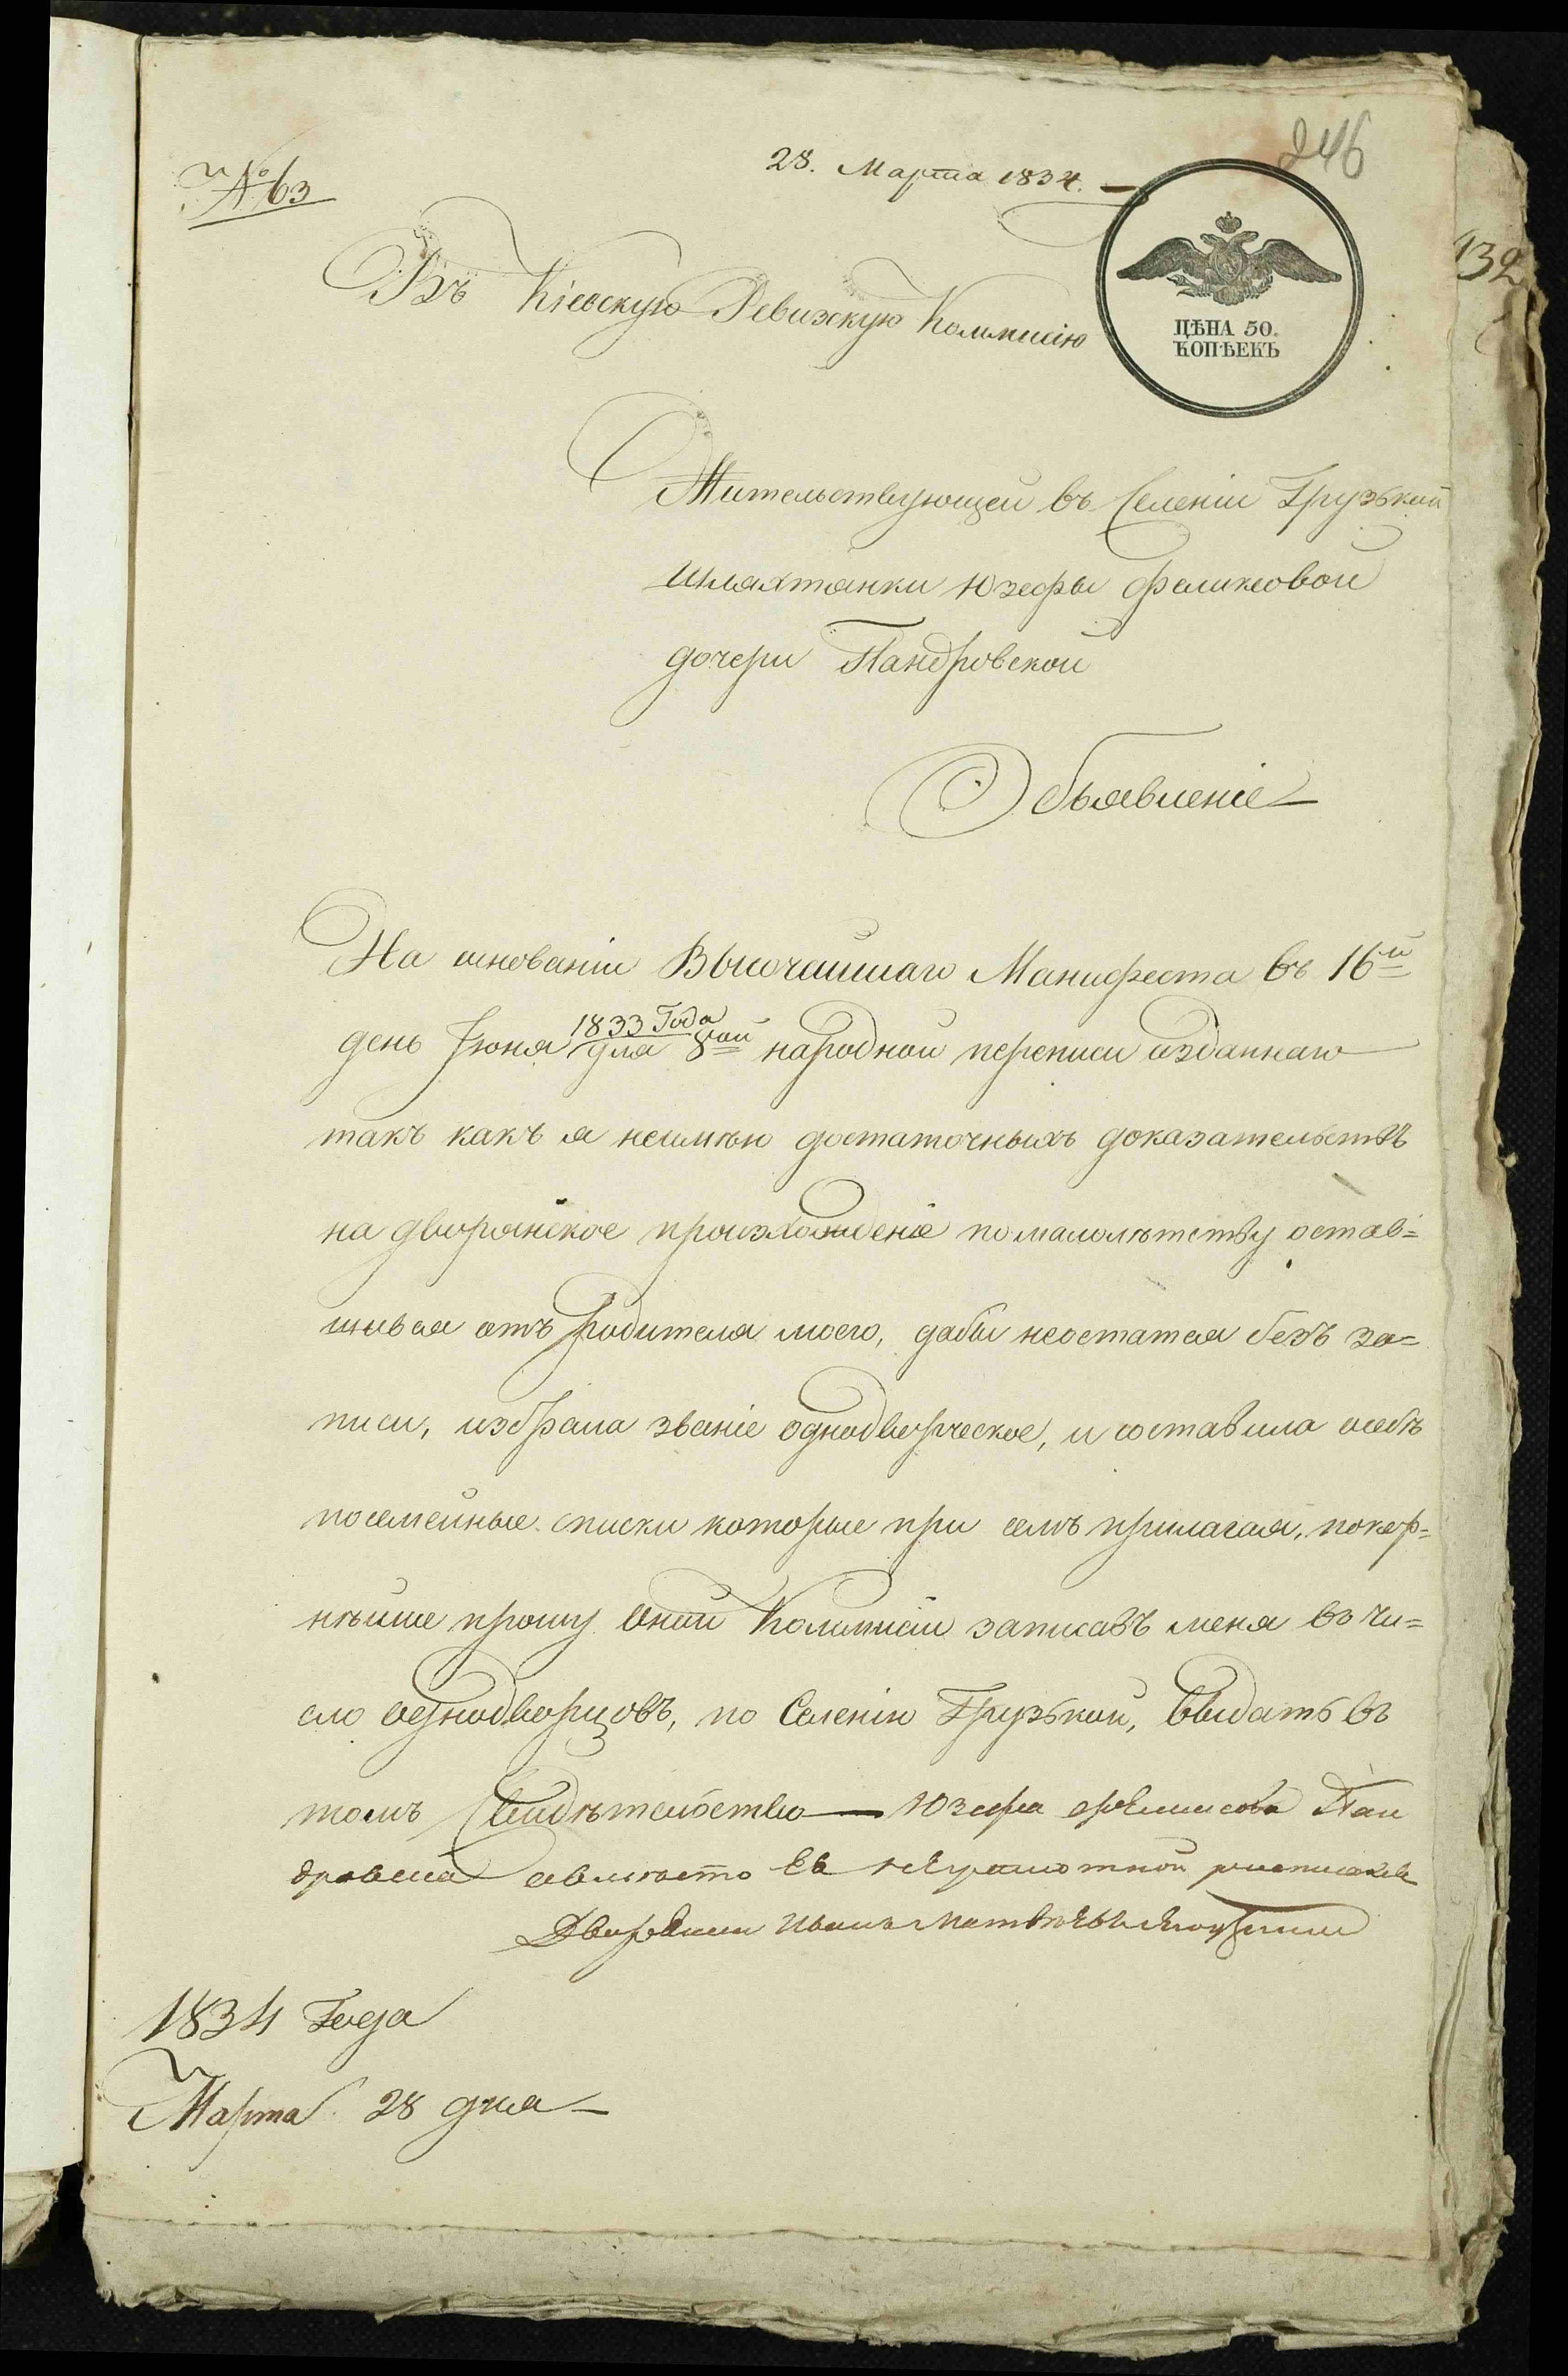 246
28. Марта 1834.
№ 63
132
Въ Кіевскую Ревизкую Коммисію
ЦѢНА 50.
КОПѢЕКЪ
Жительствующей въ Селеніи Грузькой
шляхтянки Юзефы Феликсовой
дочери Пандровской
Объявленіе
На основаніи Высочайшаго Манифеста въ 16й
1833 Года
день Іюня для 8ой народной переписи изданнаго
такъ какъ я неимѣю достаточныхъ доказательствъ
на дворянское произхожденіе помалолѣтству остав=
шывся отъ родителя моего, дабы неостатся безъ за=
писи, избрала званіе однодворческое, и составила осебѣ
посемейные списки которые при семъ прилагая, покор=
нѣйше прошу оной Коммисіи записавъ меня въ чи=
сло однодворцовъ, по Селенію Грузькой, выдать въ
томъ Свидѣтельство — Юзефа Феликсова Пан
дровска авмѣсто Ев неграмотной росписался
Дворянин Иванъ Матвѣевъ
1834 Года
Марта 28 дня